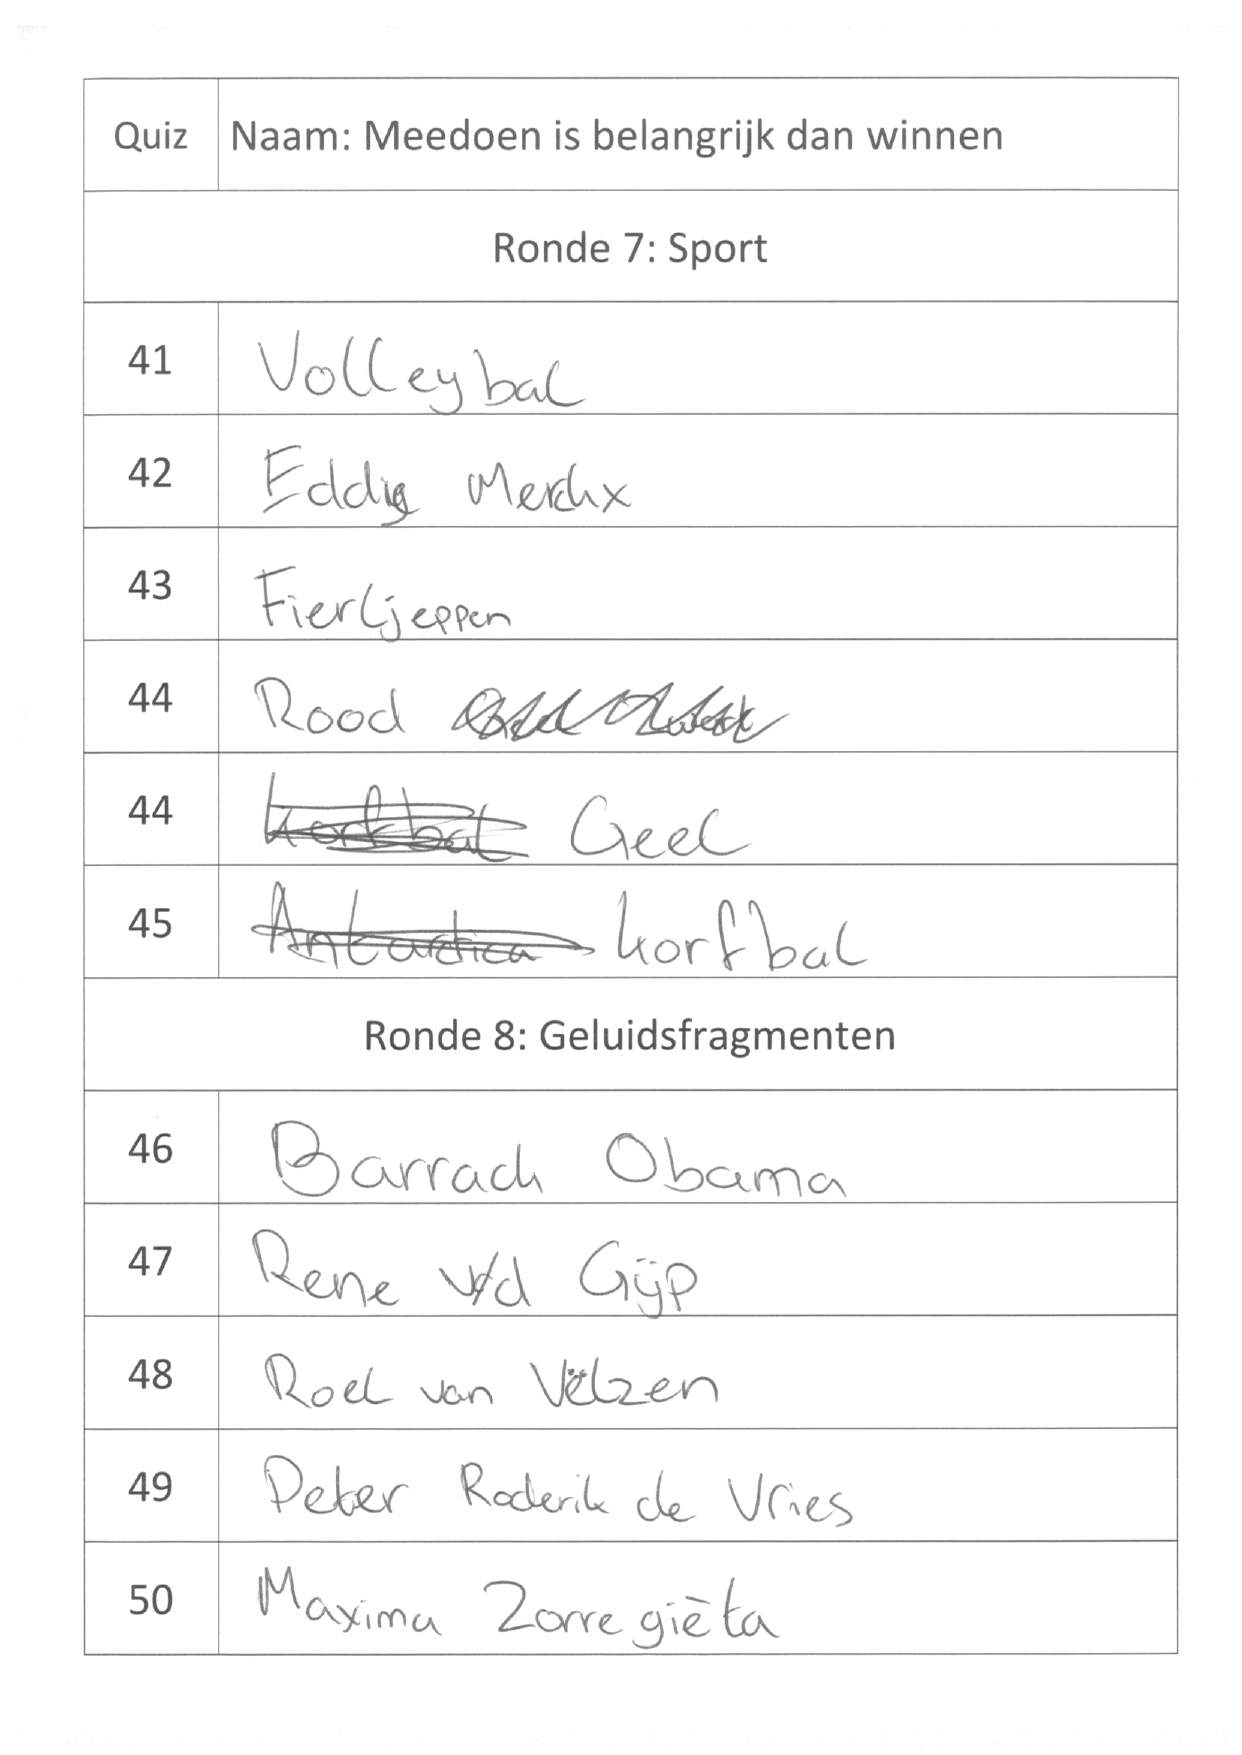 Quiz Naam: Meedoen is belangrijk dan winnen
Ronde 7: Sport
41 Volleybal
42 Eddie Merckx
43 Fierljeppen
44 Rood
44 korfbal Geel
45 Antartica korfbal
Ronde 8: Geluidsfragmenten
46 Barrack Obama
47 Rene v/d Gijp
48 Roel van Vëlzen
49 Peter Roderik de Vries
50 Maxima Zorregièta